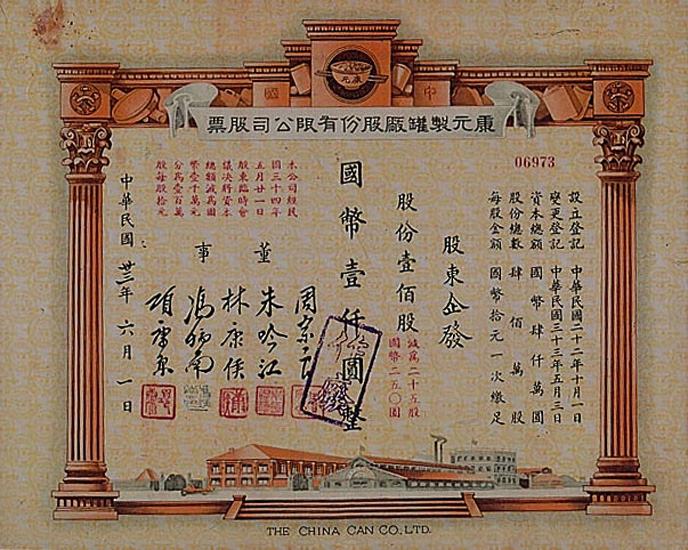 康元
中國
康元製罐廠股份有限公司股票
06973
設立登記 中華民國二十二年十月一日
變更登記 中華民國三十三年五月三日
資本總額 國幣肆仟萬圓
股份總數 肆佰萬股
每股金額 國幣拾元一次繳足
股東企發
股份壹佰股
減為二十五股
國幣二五〇圓
國幣壹仟圓整
本公司經民
國三十四年
五月廿一日
股東臨時會
議決將資本
總額減為國
幣壹千萬元
分為壹百萬
股每股拾元
董事
周宗良
朱吟江
林康侯
馮炳南
項康原
中華民國卅三年六月一日
THE CHINA CAN CO., LTD.